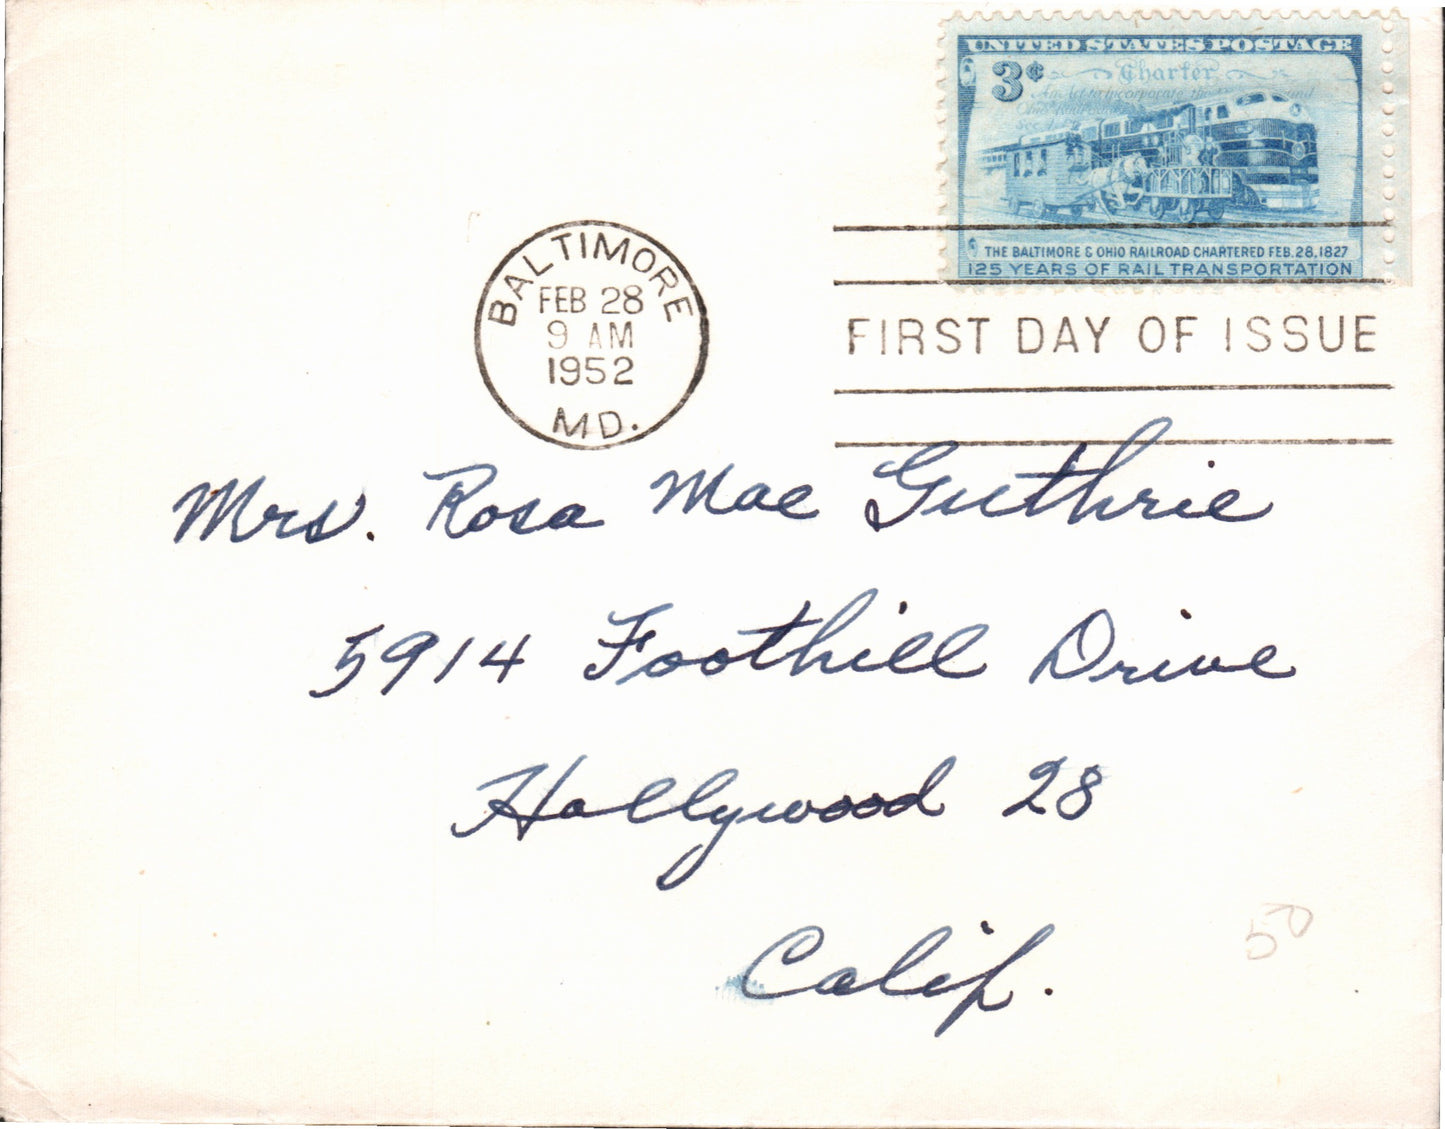 UNITED STATES POSTAGE
3¢
Charter
An Act to Incorporate the
THE BALTIMORE & OHIO RAILROAD CHARTERED FEB. 28, 1827
125 YEARS OF RAIL TRANSPORTATION
BALTIMORE
FEB 28
9 AM
1952
MD.
FIRST DAY OF ISSUE
Mrs. Rosa Mae Guthrie
5914 Foothill Drive
Hollywood 28
Calif.
50